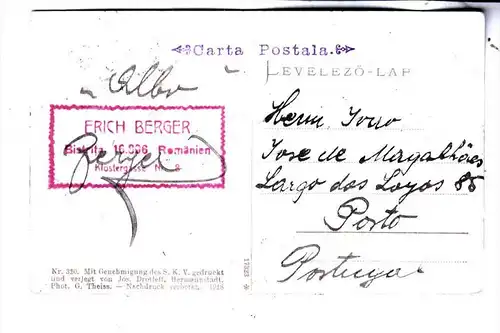 Carta Postala.
LEVELEZŐ-LAP
ERICH BERGER
Bistritz, 16.996, Românien
Klostergasse Nr. 8
Berger
Herrn
Jose de Magalhães
Largo dos Loyos 85
Porto
Portugal
Nr. 320. Mit Genehmigung des S. K. V. gedruckt
und verlegt von Jos. Drotleff, Hermannstadt.
Phot. G. Theiss. — Nachdruck verboten. 1918